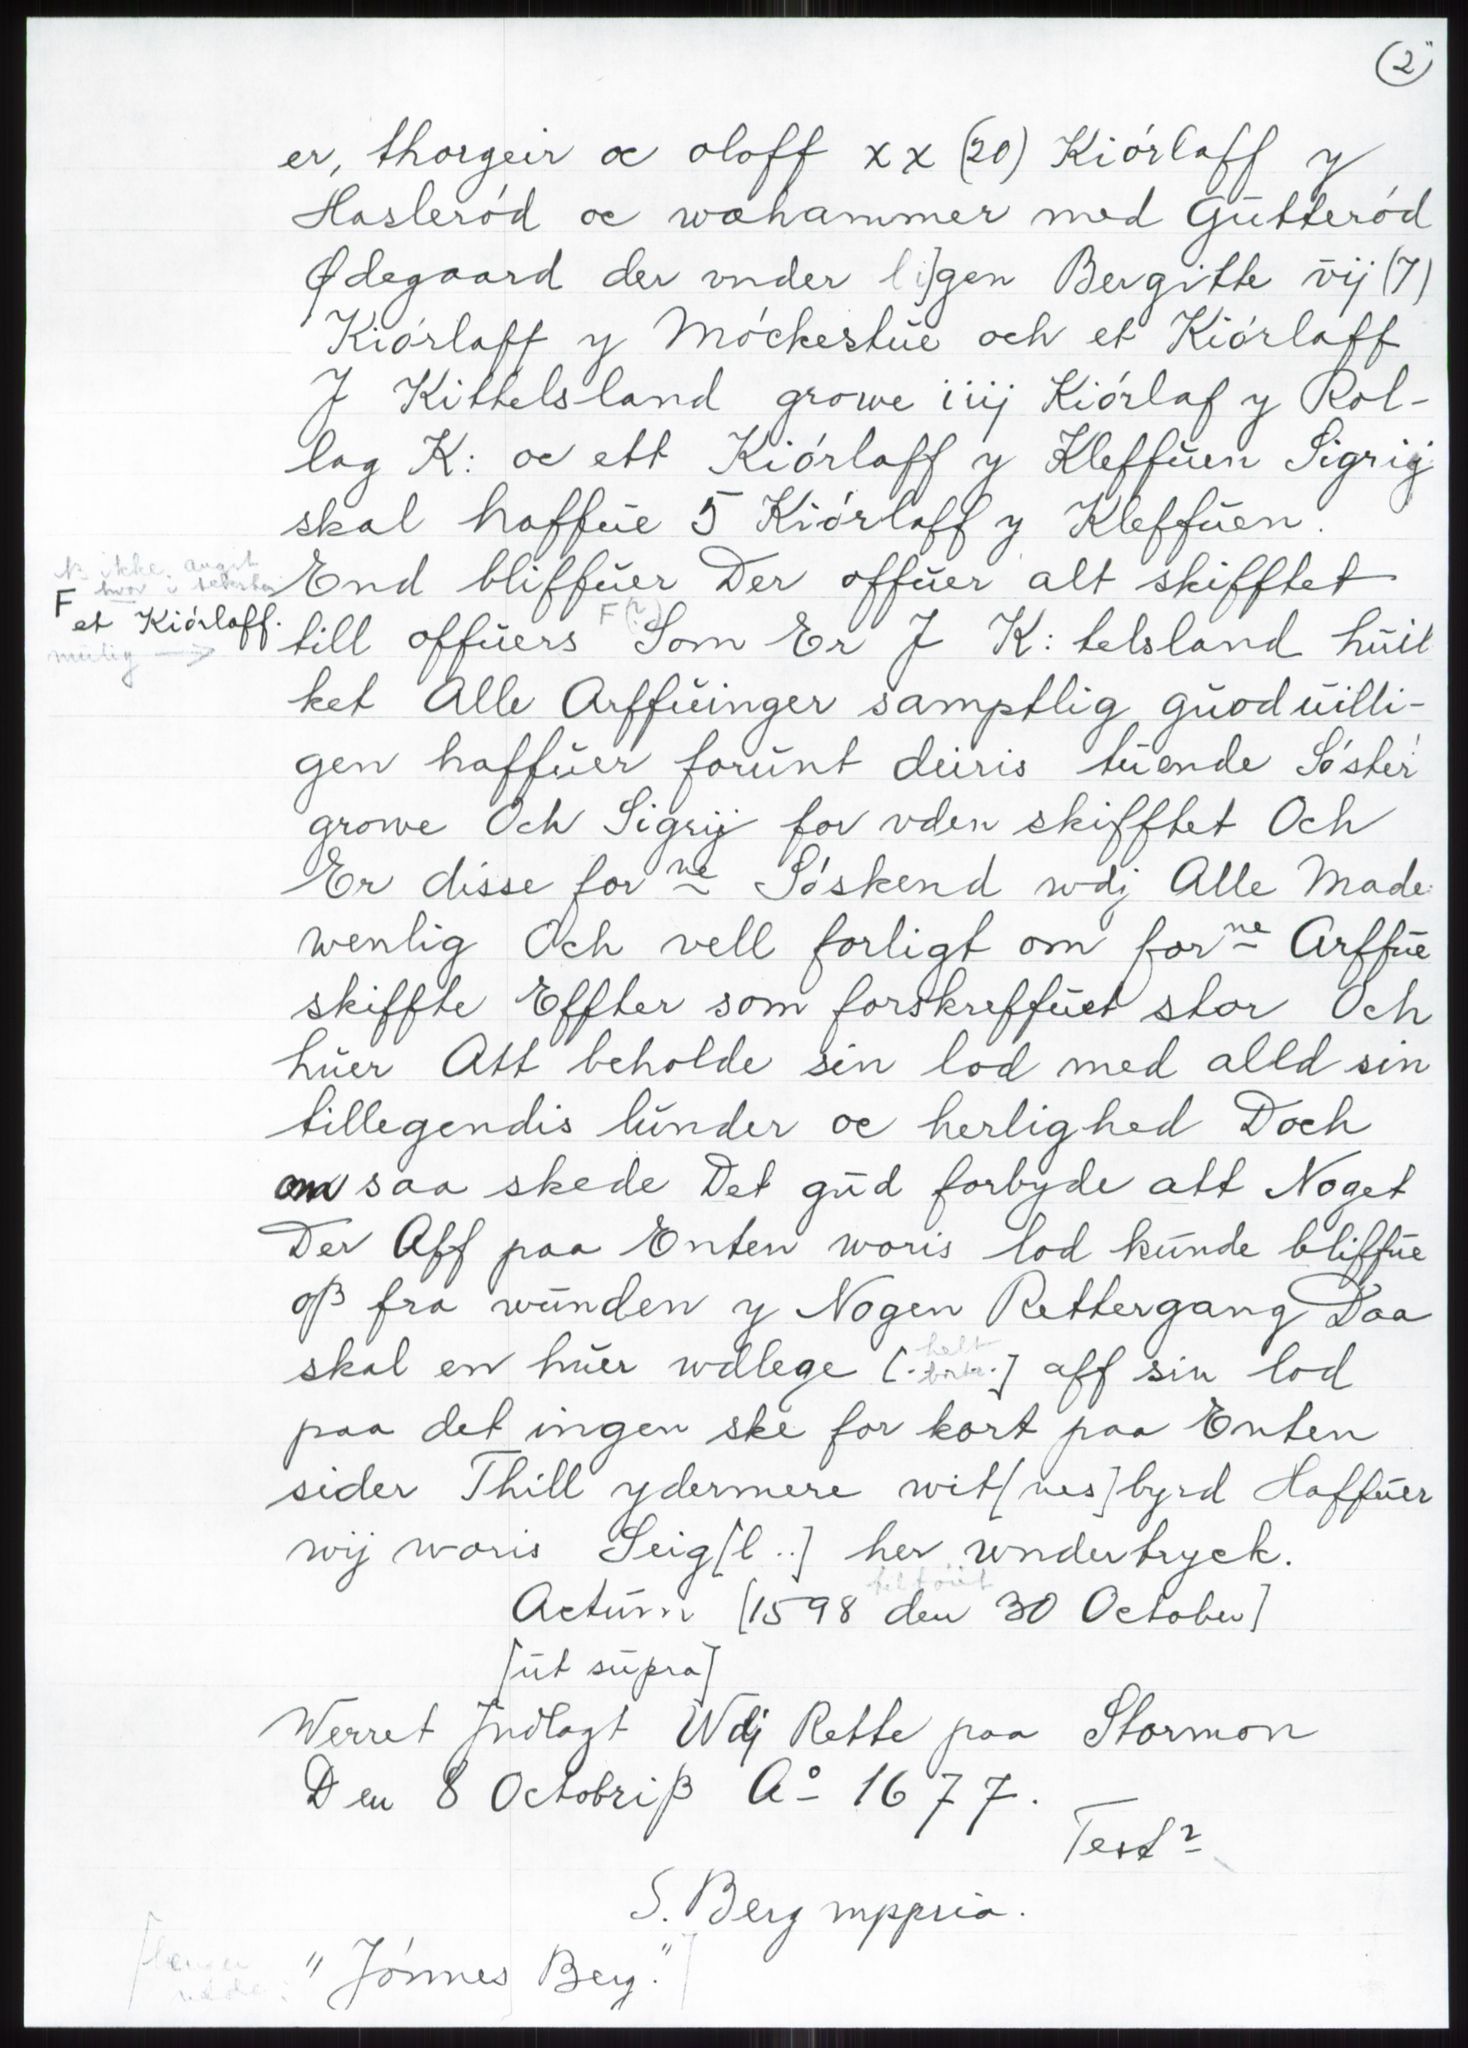 (2)
er, thorgeir oc oloff xx (20) Kiórlaff y
Hasleród oc wæhammer med Gutteród
Ødegaard der vnder li]gen Bergitte vij (7)
Kiórlaff y Móckestue och et Kiórlaff
J Kittelsland growe iiij Kiórlaf y Rol-
lag K: oc ett Kiórlaff y Kleffuen Sigrij
skal haffue 5 Kiórlaff y Kleffuen.
NB ikke angit
hvor i teksten
End bliffuer Der offuer alt skifftet
F et Kiórlaff.
till offuers F(?) Som Er J K: telsland huil
mulig →
ket Alle Arffuinger samptlig guoduilli-
gen haffuer forunt deiris tuende Sóster
growe Och Sigrij for vden skifftet Och
Er disse for ne Sóskend wdj Alle Made
wenlig Och vell forligt om for ne Arffue
skiffte Effter som forskreffuet stor Och
huer Att beholde sin lod med alld sin
tillegendis lunder oc herlighed Doch
om saa skede Det gud forbyde att Noget
Der Aff paa Enten woris lod kunde bliffue
oß fra wunden y Nogen Rettergang Daa
skal en huer wdlege [. helt borte .] aff sin lod
paa det ingen ske for kort paa Enten
sider Thill ydermere wit[nes]byrd Haffuer
wij woris Seig[l ..] her wndertryck.
tilføiet
Actum [1598 den 30 October]
[ut supra]
Werret Jndlagt Wdj Rette paa Stormon
Den 8 Octobriß A° 1677.
Test
S. Berg mppria.
[længer nede: "Jónnes Berg."]